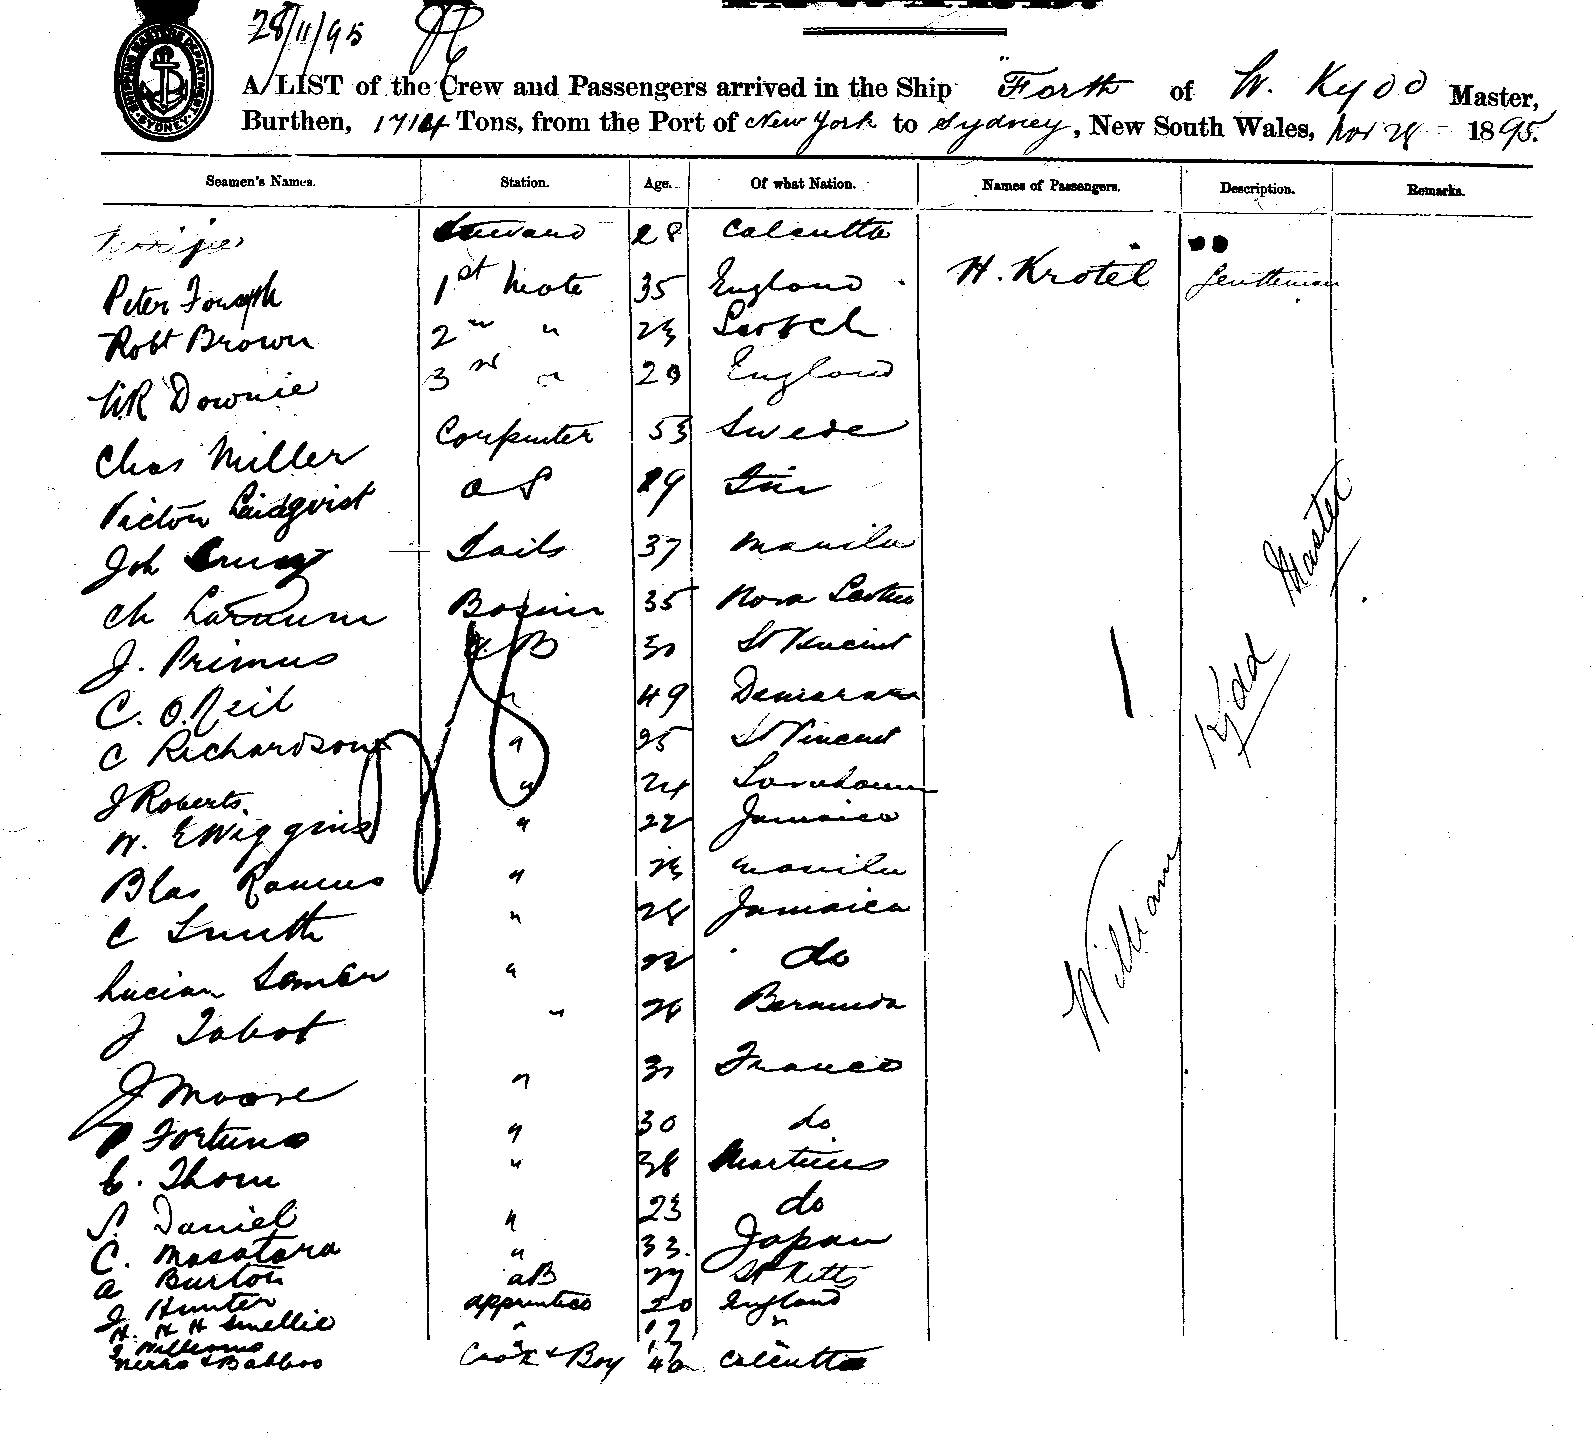 28/11/95
A LIST of the Crew and Passengers arrived in the Ship "Forth of W. Kydd Master,
Burthen, 1714 Tons, from the Port of New York to Sydney, New South Wales, Nov 28 1895.
Seamen's Names. Station. Age. Of what Nation. Names of Passengers. Description. Remarks.
Steward 28 Calcutta
Peter Forsyth 1st Mate 35 England H. Krotel Gentleman
Robt Brown 2nd " 23 Scotch
WR Downie 3rd " 20 England
Chas Miller Carpenter 53 Swede
Victor Lindqvist OS 19 Fin
Joh Cruz Sails 37 Manila
Ch Bosun 35 Nova Scotia
J. Primus AB 30 St Vincent
C. O.Neil " 49 Demarara
C Richardson " 25 St Vincent
J Roberts. " 24
W. E Wiggins " 22 Jamaica
Blas Ramus " 23 Manila
C Smith " 28 Jamaica
Lucian " 22 do
J Tabot " 26 Bermuda
J Moore " 30 France
Fortune " 30 do
C. Thom " 38 Martinis
S. Daniel " 23 do
C. Masatara " 33. Japan
A Burton aB 27 St Kitts
J Hunter apprentice 20 England
H. H H Smellie " 17 "
J Williams " 17 "
Cook & Boy 40 Calcutta
William Kydd Master